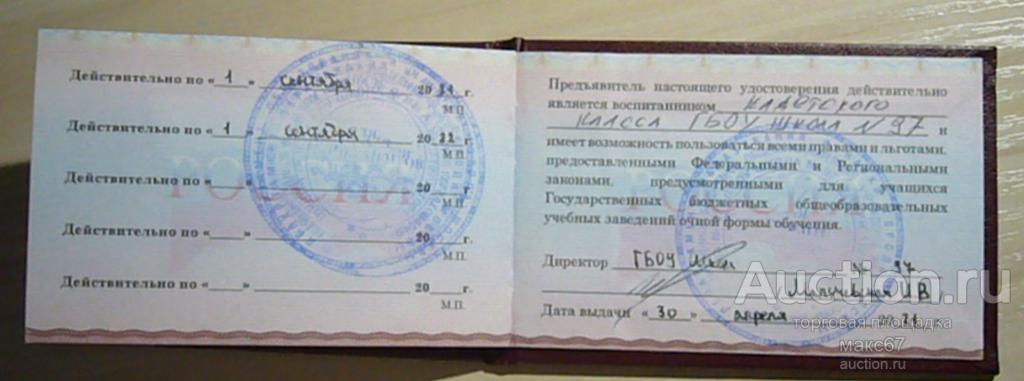 Действительно по « 1 » сентября 20 21 г.
М.П.
Действительно по « 1 » сентября 20 22 г.
М.П.
Действительно по « » 20 г.
М.П.
Действительно по « » 20 г.
М.П.
Действительно по « » 20 г.
М.П.
РОССИЯ
Предъявитель настоящего удостоверения действительно
является воспитанником кадетского
класса ГБОУ школа N 97 и
имеет возможность пользоваться всеми правами и льготами,
предоставленными Федеральными и Региональными
законами, предусмотренными для учащихся
Государственных бюджетных общеобразовательных
учебных заведений очной формы обучения.
РОССИЯ
Директор ГБОУ 97
В
Дата выдачи « 30 » апреля 2021
Auction.ru
торговая площадка
макс67
auction.ru